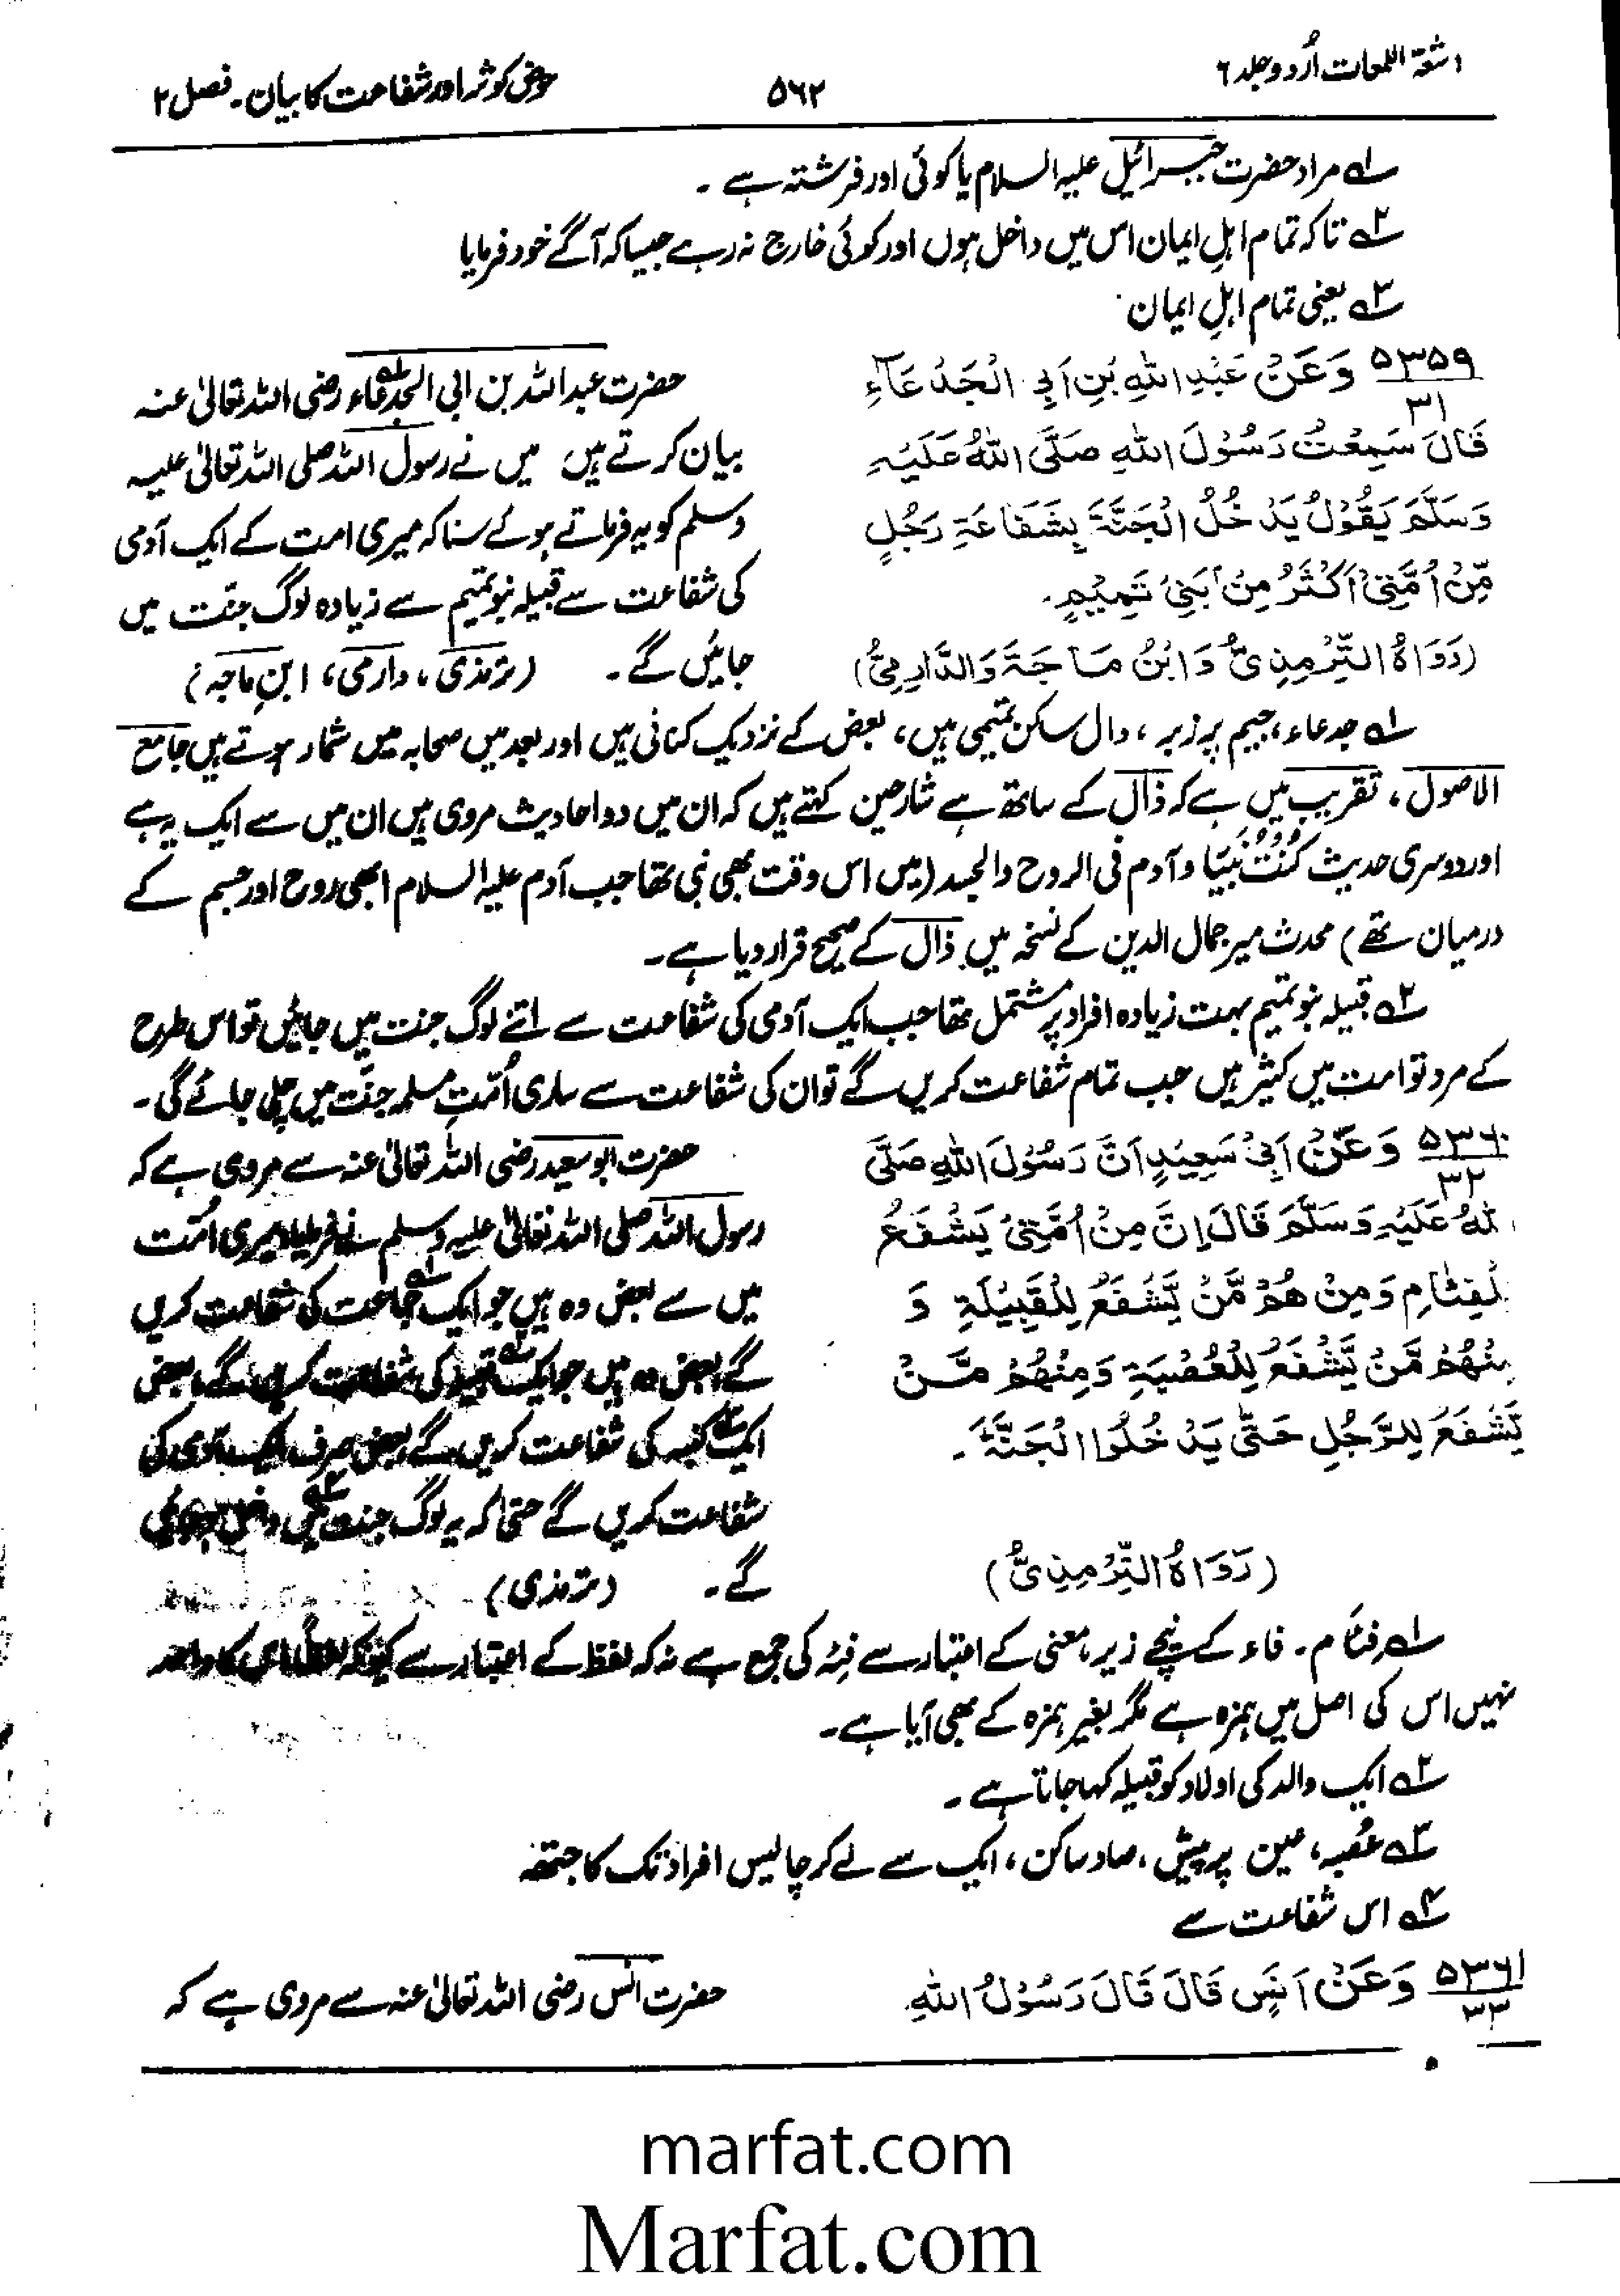 اشعۃ اللمعات اُردو جلد ۶
۵۶۲
حوض کوثر اور شفاعت کا بیان۔ فصل ۲
۱ مراد حضرت جبرائیل علیہ السلام یا کوئی اور فرشتہ ہے ۔
۲ تاکہ تمام اہلِ ایمان اس میں داخل ہوں اور کوئی خارج نہ رہے جیسا کہ آگے خود فرمایا
۳ یعنی تمام اہلِ ایمان
۵۳۵۹ وَعَنْ عَبْدِ اللهِ بْنِ اَبِي الْجَدْعَآءِ
۳۱
قَالَ سَمِعْتُ رَسُوْلَ اللهِ صَلَّى اللهُ عَلَيْهِ
وَسَلَّمَ يَقُوْلُ يَدْخُلُ الْجَنَّةَ بِشَفَاعَةِ رَجُلٍ
مِّنْ اُمَّتِيْ اَكْثَرُ مِنْ بَنِيْ تَمِيْمٍ.
(رَوَاهُ التِّرْمِذِيُّ وَابْنُ مَاجَةَ وَالدَّارِمِيُّ)
حضرت عبداللہ بن ابی الجدعاء۱ رضی اللہ تعالیٰ عنہ
بیان کرتے ہیں میں نے رسول اللہ صلی اللہ تعالیٰ علیہ
وسلم کو یہ فرماتے ہوئے سنا کہ میری امت کے ایک آدمی
کی شفاعت سے قبیلہ بنو تمیم سے زیادہ لوگ جنّت میں
جائیں گے ۔ (ترمذی، دارمی، ابنِ ماجہ)
۱ جدعاء، جیم پر زبر ، دال ساکن تمیمی ہیں، بعض کے نزدیک کنانی ہیں اور بعد میں صحابہ میں شمار ہوتے ہیں جامع
الاصول ، تقریب میں ہے کہ ذال کے ساتھ ہے شارحین کہتے ہیں کہ ان میں دو احادیث مروی ہیں ان میں سے ایک یہ ہے
اور دوسری حدیث کُنْتُ نَبِیًّا وآدم فی الروح والجسد (میں اس وقت بھی نبی تھا جب آدم علیہ السلام ابھی روح اور جسم کے
درمیان تھے) محدث میر جمال الدین کے نسخہ میں ذال کے صحیح قرار دیا ہے۔
۲ قبیلہ بنو تمیم بہت زیادہ افراد پر مشتمل تھا جب ایک آدمی کی شفاعت سے اتنے لوگ جنت میں جائیں تو اس طرح
کے مرد تو امت میں کثیر ہیں جب تمام شفاعت کریں گے تو ان کی شفاعت سے ساری اُمّتِ مسلمہ جنّت میں چلی جائے گی ۔
۵۳۶۰ وَعَنْ اَبِيْ سَعِيْدٍ اَنَّ رَسُوْلَ اللهِ صَلَّى
۳۲
اللهُ عَلَيْهِ وَسَلَّمَ قَالَ اِنَّ مِنْ اُمَّتِيْ يَشْفَعُ
لِلْفِئَامِ وَمِنْهُمْ مَّنْ يَّشْفَعُ لِلْقَبِيْلَةِ وَ
مِنْهُمْ مَّنْ يَّشْفَعُ لِلْعُصْبَةِ وَمِنْهُمْ مَّنْ
يَّشْفَعُ لِلرَّجُلِ حَتّٰى يَدْخُلُوا الْجَنَّةَ ۔
(رَوَاهُ التِّرْمِذِيُّ)
حضرت ابو سعید رضی اللہ تعالیٰ عنہ سے مروی ہے کہ
رسول اللہ صلی اللہ تعالیٰ علیہ وسلم نے فرمایا میری اُمّت
میں سے بعض وہ ہیں جو ایک جماعت۱ کی شفاعت کریں
گے بعض وہ ہیں جو ایک قبیلہ۲ کی شفاعت کریں گے، بعض
ایک کنبہ۳ کی شفاعت کریں گے، بعض صرف ایک آدمی کی
شفاعت کریں گے حتیٰ کہ یہ لوگ جنت۴ میں داخل ہو جائیں
گے ۔ (ترمذی)
۱ فئام ۔ فاء کے نیچے زیر، معنی کے اعتبار سے فئہ کی جمع ہے نہ کہ لفظ کے اعتبار سے کیونکہ لفظاً اس کا واحد
نہیں اس کی اصل میں ہمزہ ہے مگر بغیر ہمزہ کے بھی آیا ہے۔
۲ ایک والد کی اولاد کو قبیلہ کہا جاتا ہے ۔
۳ عُصبہ، عین پر پیش ، صاد ساکن ، ایک سے لے کر چالیس افراد تک کا جتھہ
۴ اس شفاعت سے
۵۳۶۱ وَعَنْ اَنَسٍ قَالَ قَالَ رَسُوْلُ اللهِ
۳۳
حضرت انس رضی اللہ تعالیٰ عنہ سے مروی ہے کہ
marfat.com
Marfat.com